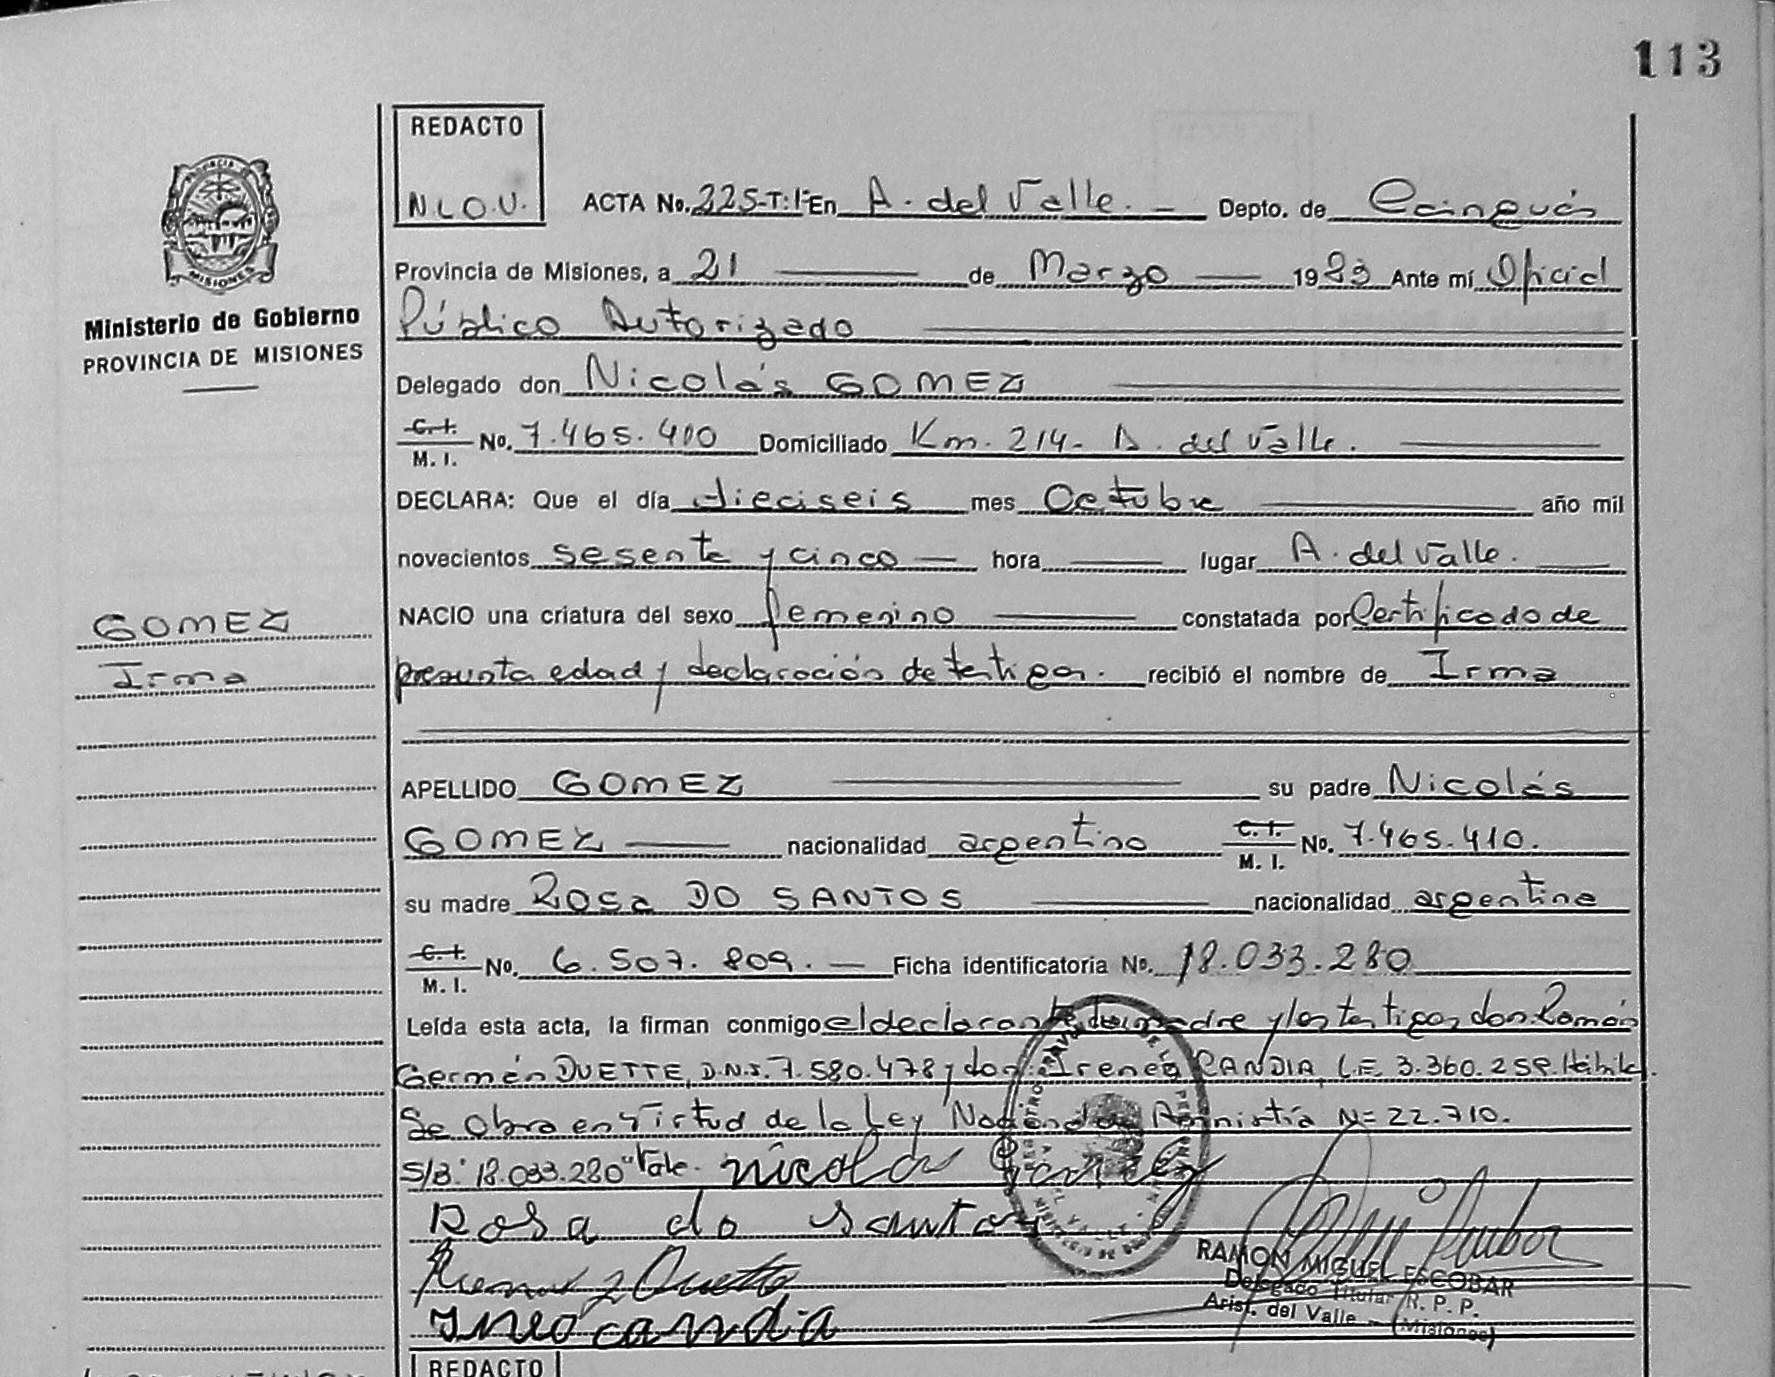 113
REDACTO
N.L.O.V.
ACTA No. 225-T:1- En A. del Valle. - Depto. de Cainguás
Provincia de Misiones, a 21 de Marzo 1983 Ante mí Oficial
Público Autorizado
Ministerio de Gobierno
PROVINCIA DE MISIONES
MISIONES
Delegado don Nicolás GOMEZ
C.I. M.I. No. 7.465.410 Domiciliado Km. 214- A. del Valle.
DECLARA: Que el día dieciseis mes Octubre año mil
novecientos sesenta y cinco hora lugar A. del Valle.
GOMEZ
Irma
NACIO una criatura del sexo femenino constatada por Certificado de
presunta edad y declaración de testigos. recibió el nombre de Irma
APELLIDO GOMEZ su padre Nicolás
GOMEZ nacionalidad argentino C.I. M.I. No. 7.465.410.
su madre Rosa DO SANTOS nacionalidad argentina
C.I. M.I. No. 6.507.809. Ficha identificatoria No. 18.033.280
Leída esta acta, la firman conmigo el declarante, la madre y los testigos don Ramón
Germán DUETTE, D.N.I. 7.580.478 y don Ireneo CANDIA, L.E. 3.360.259. Hábiles.
Se Obra en Virtud de la Ley Nacional de Amnistía Nº 22.710.
S/B: 18.033.280 "Vale. Nicolás Gomez
Rosa do Santos
Duette
Ineo candia
RAMON MIGUEL ESCOBAR
Delegado Titular R. P. P.
Arist. del Valle - (Misiones)
REDACTO